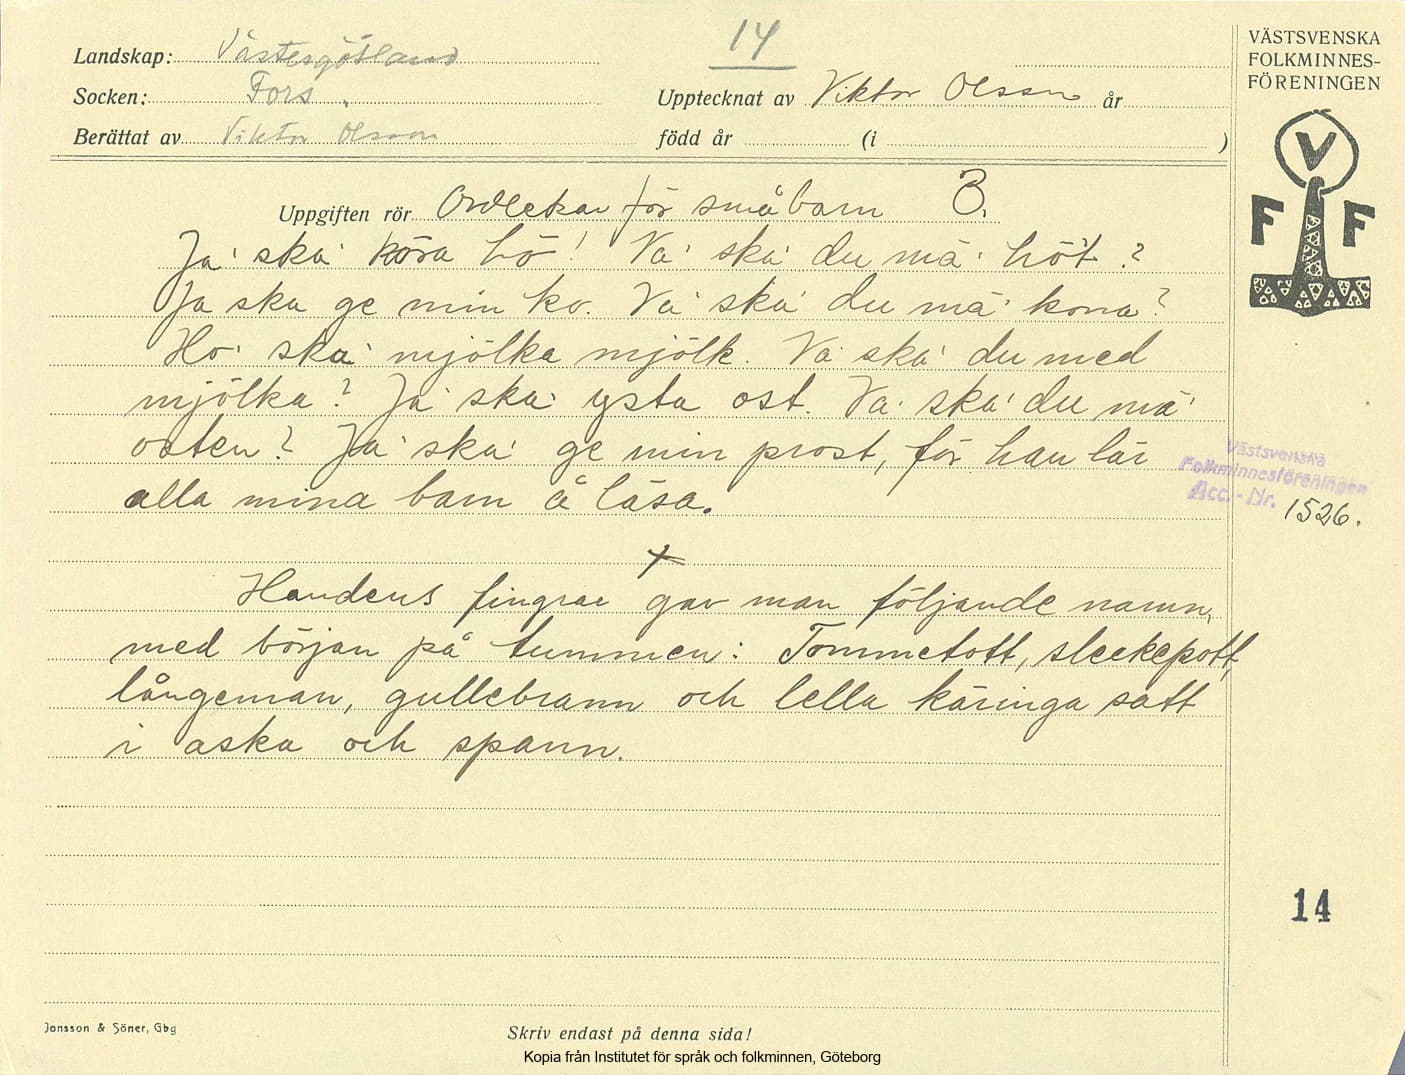 14
Landskap: Västergötland
Socken: Fors.
Upptecknat av Viktor Olsson år
Berättat av Viktor Olsson
född år (i )
VÄSTSVENSKA
FOLKMINNES-
FÖRENINGEN
V
F F
Uppgiften rör Ordlekar för småbarn 3.
Ja' ska' köra hö! Va' ska' du mä' höt?
Ja ska ge min ko. Va' ska' du mä' kona?
Ho' ska' mjölka mjölk. Va ska' du med
mjölka? Ja' ska' ysta ost. Va' ska' du mä'
osten? Ja' ska' ge min prost, för han lär
alla mina barn å läsa.
Västsvenska
Folkminnesföreningen
Acc.-Nr. 1526.
x
Handens fingrar gav man följande namn,
med början på tummen: Tommetott, sleekepott,
långeman, gullebrann och lella käringa satt
i aska och spann.
14
Jonsson & Söner, Gbg
Skriv endast på denna sida!
Kopia från Institutet för språk och folkminnen, Göteborg